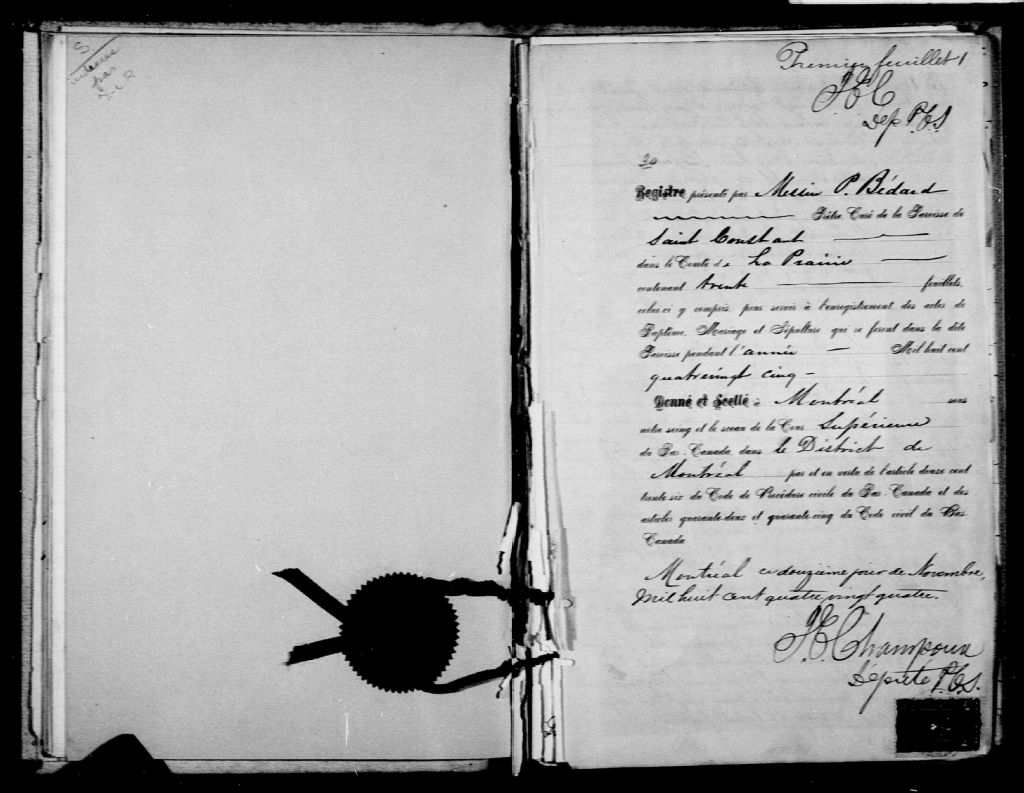 S
par
Premier feuillet 1
J E C
Dép P.C.S.
30
Registre présenté par Messire P. Bédard
Prêtre Curé de la Paroisse de
Saint Constant
dans le Comté de La Prairie
contenant trente feuillets,
celui-ci y compris, pour servir à l'enregistrement des actes de
Baptême, Mariage et Sépulture qui se feront dans la dite
Paroisse pendant l'année Mil huit cent
quatrevingt cinq -
Donné et Scellé à Montréal sous
notre seing et le sceau de la Cour Supérieure
du Bas-Canada, dans le District de
Montréal par et en vertu de l'article douze cent
trente-six du Code de Procédure civile du Bas-Canada et des
articles quarante-deux et quarante-cinq du Code civil du Bas
Canada
Montréal ce douzième jour de Novembre,
Mil huit cent quatre vingt quatre.
J. E. Champoux
Député P.C.S.